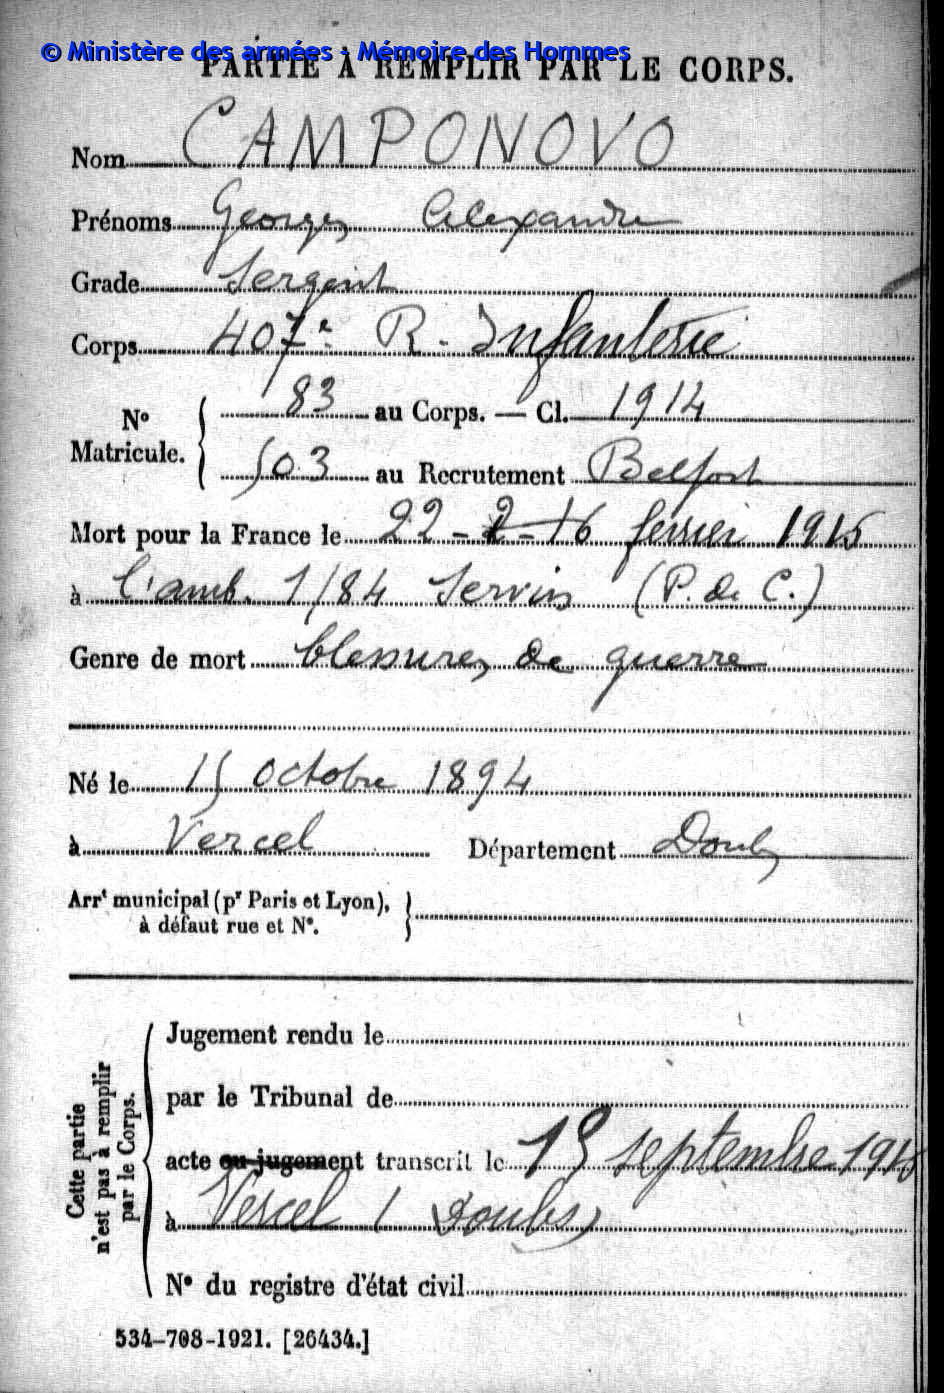 © Ministère des armées - Mémoire des Hommes
PARTIE À REMPLIR PAR LE CORPS.
Nom CAMPONOVO
Prénoms Georges Alexandre
Grade Sergent
Corps 407e R. Infanterie
N° Matricule. { 83 au Corps. — Cl. 1914
503 au Recrutement Belfort
Mort pour la France le 22 - 2 - 16 février 1915
à l'amb. 1/84 Servins (P. de C.)
Genre de mort blessures de guerre
Né le 15 octobre 1894
à Vercel Département Doubs
Arrt municipal (pr Paris et Lyon),
à défaut rue et N°. }
Cette partie n'est pas à remplir par le Corps.
Jugement rendu le
par le Tribunal de
acte ou jugement transcrit le septembre
à Vercel / Doubs
N° du registre d'état civil
534-708-1921. [26434.]